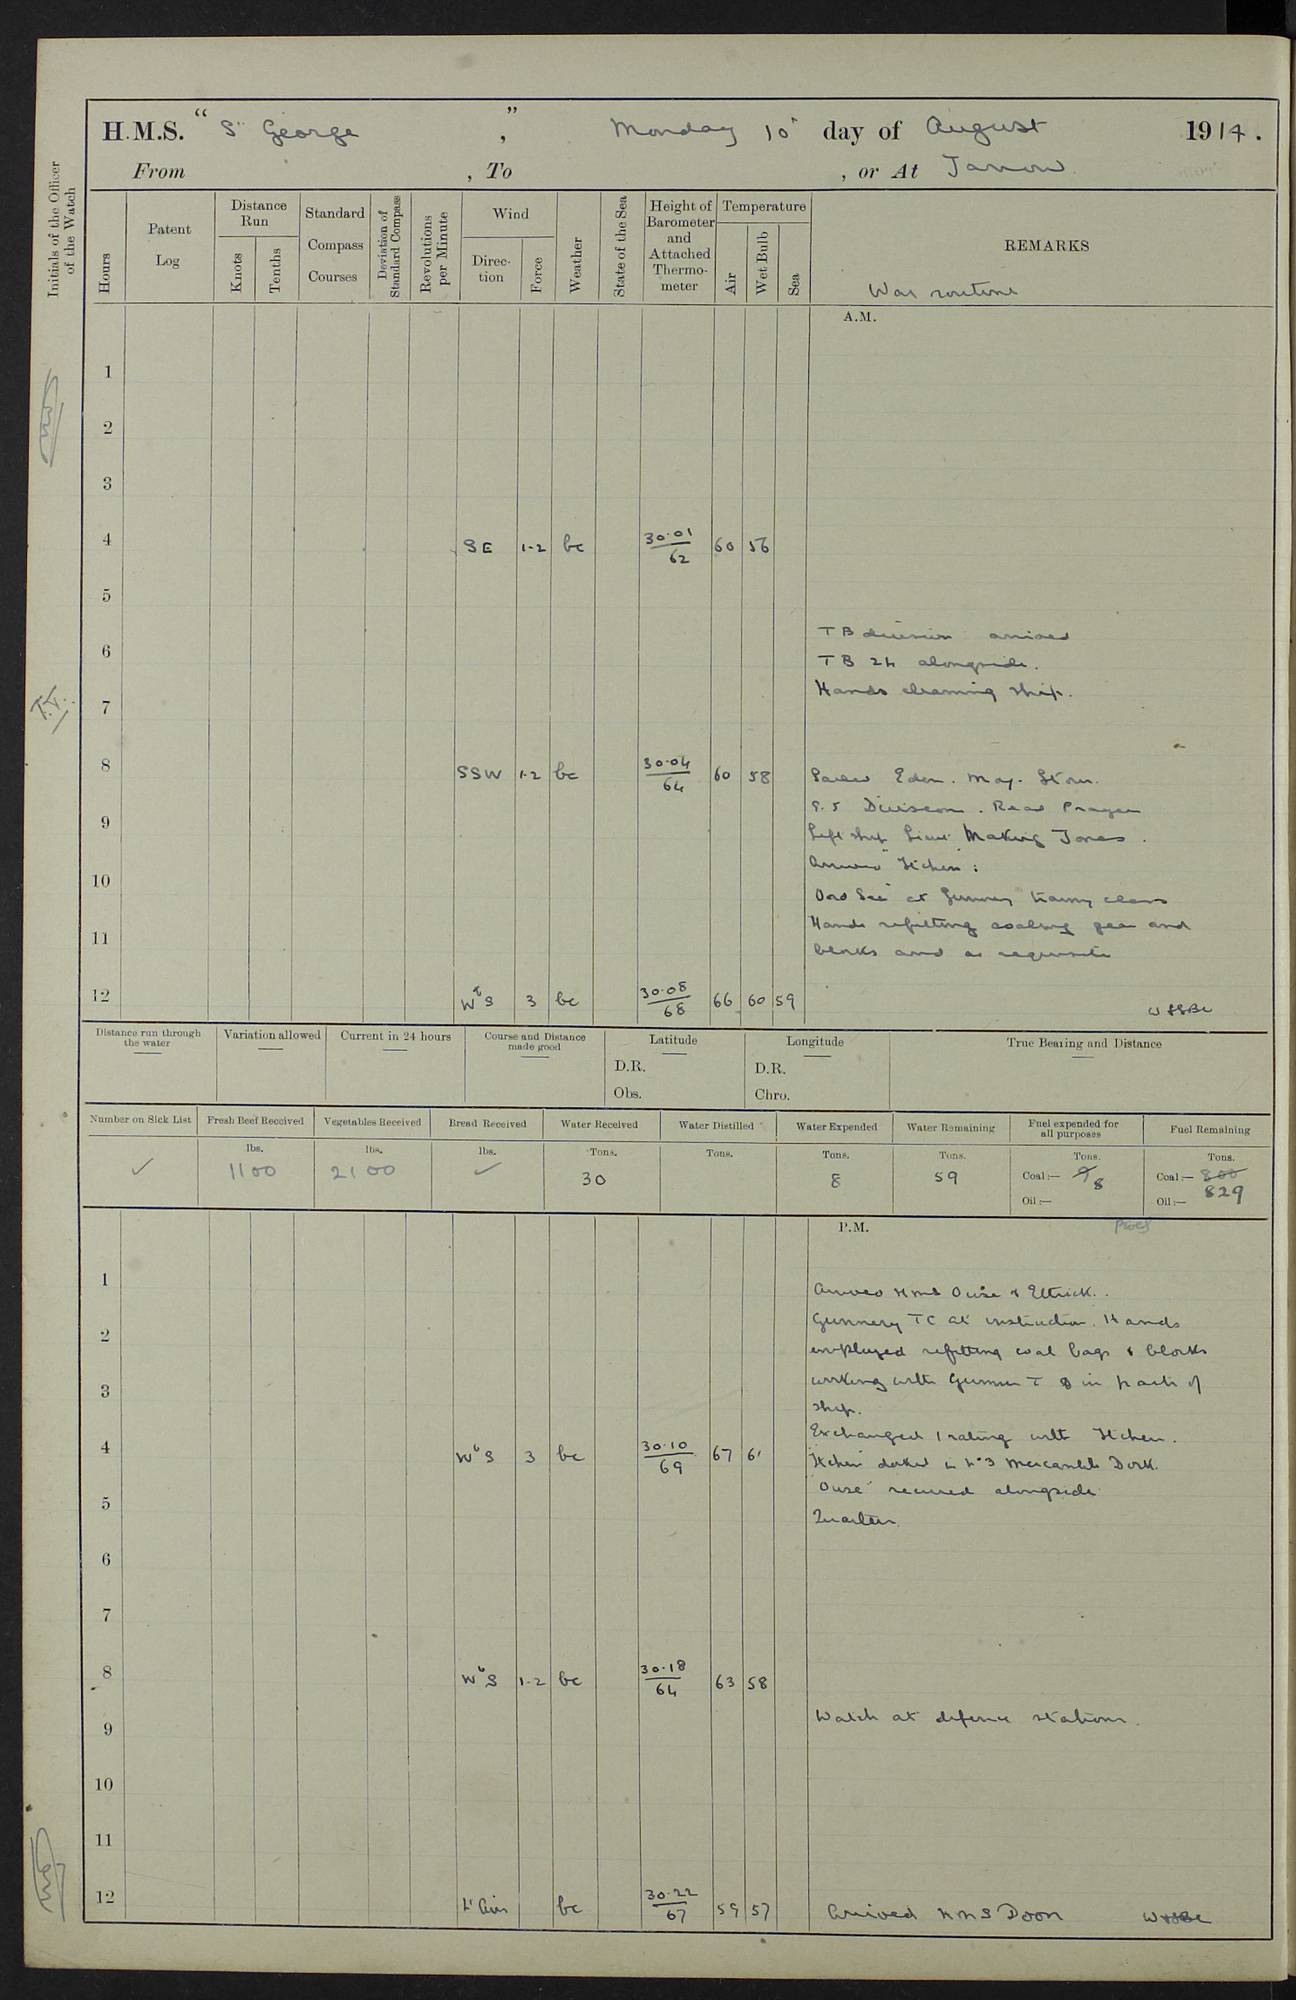 H.M.S. "St George", Monday 10th day of August 1914.
From , To , or At Jarrow
Initials of the Officer of the Watch
Hours
Patent Log
Distance Run
Knots
Tenths
Standard Compass Courses
Deviation of Standard Compass
Revolutions per Minute
Wind
Direction
Force
Weather
State of the Sea
Height of Barometer and Attached Thermometer
Temperature
Air
Wet Bulb
Sea
REMARKS
War routine
A.M.
1
2
3
4 SE 1-2 bc 30.01/62 60 56
5
TB division arrived
6
TB 24 alongside.
Hands cleaning ship.
7
8 SSW 1-2 bc 30.04/64 60 58
Sailed Eden. May. Stour.
9.5 Division. Read Prayers
9
Left ship Lieut Making Jones.
Arrived "Itchen":
10
at Gunnery training class
Hands refitting coaling gear and
11
blocks and as requisite
12 WbS 3 bc 30.08/68 66 60 59
Distance run through the water
Variation allowed
Current in 24 hours
Course and Distance made good
Latitude
D.R.
Obs.
Longitude
D.R.
Chro.
True Bearing and Distance
Number on Sick List
Fresh Beef Received
Vegetables Received
Bread Received
Water Received
Water Distilled
Water Expended
Water Remaining
Fuel expended for all purposes
Fuel Remaining
✓
lbs. 1100
lbs. 2100
lbs. ✓
Tons. 30
Tons.
Tons. 8
Tons. 59
Tons.
Coal:— 9 8
Oil:—
Tons.
Coal:— 800 829
Oil:—
P.M.
1
Arrived HMS Ouse & Ettrick.
Gunnery TC at instruction. Hands
2
employed refitting coal bags & blocks
working with Gunner T & in parts of
3
ship.
Exchanged 1 rating with Itchen.
4 WbS 3 bc 30.10/69 67 61
Itchen docked in No 3 Mercantile Dock.
"Ouse" secured alongside
5
Quarters.
6
7
8 WbS 1-2 bc 30.18/64 63 58
Watch at defence stations.
9
10
11
12 Lt Airs bc 30.22/67 59 57 Arrived HMS Doon